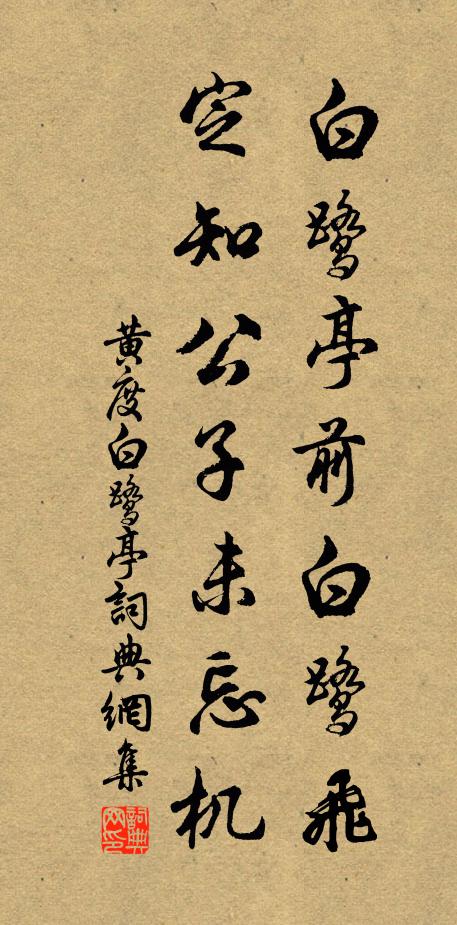 白鹭亭前白鹭飛
定知公子未忘机
黄度白鹭亭詞典網集
詞典网印